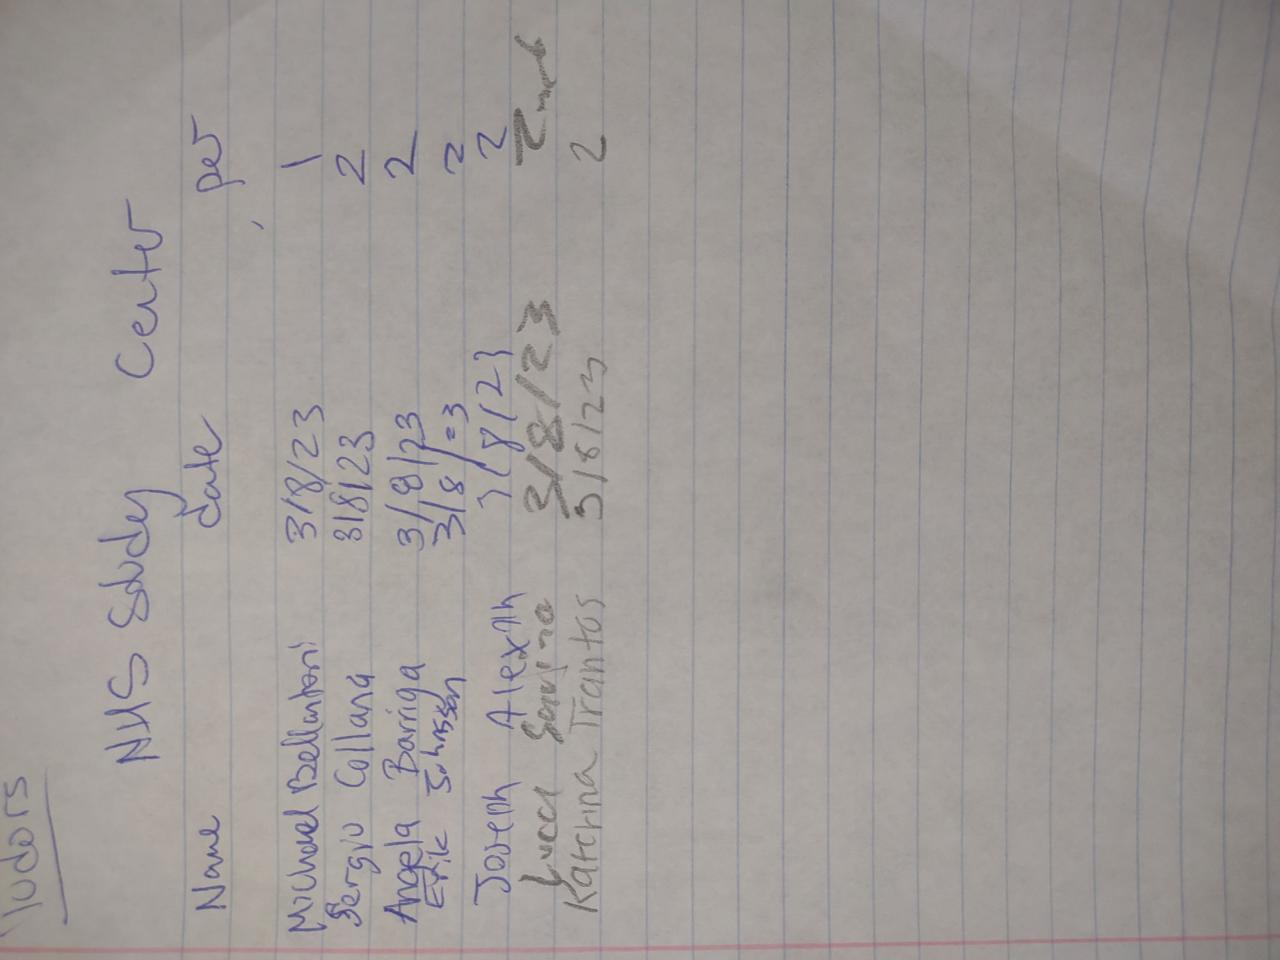 Tudors
NHS Study Center
Name date per
Michael Bellantoni 3/8/23 1
Sergio Collana 3/8/23 2
Angela Barriga 3/8/23 2
Erik Johnsson 3/8/23 2
Joseph 3/8/23 2
3/8/23 2
Katerina Trantos 3/8/23 2